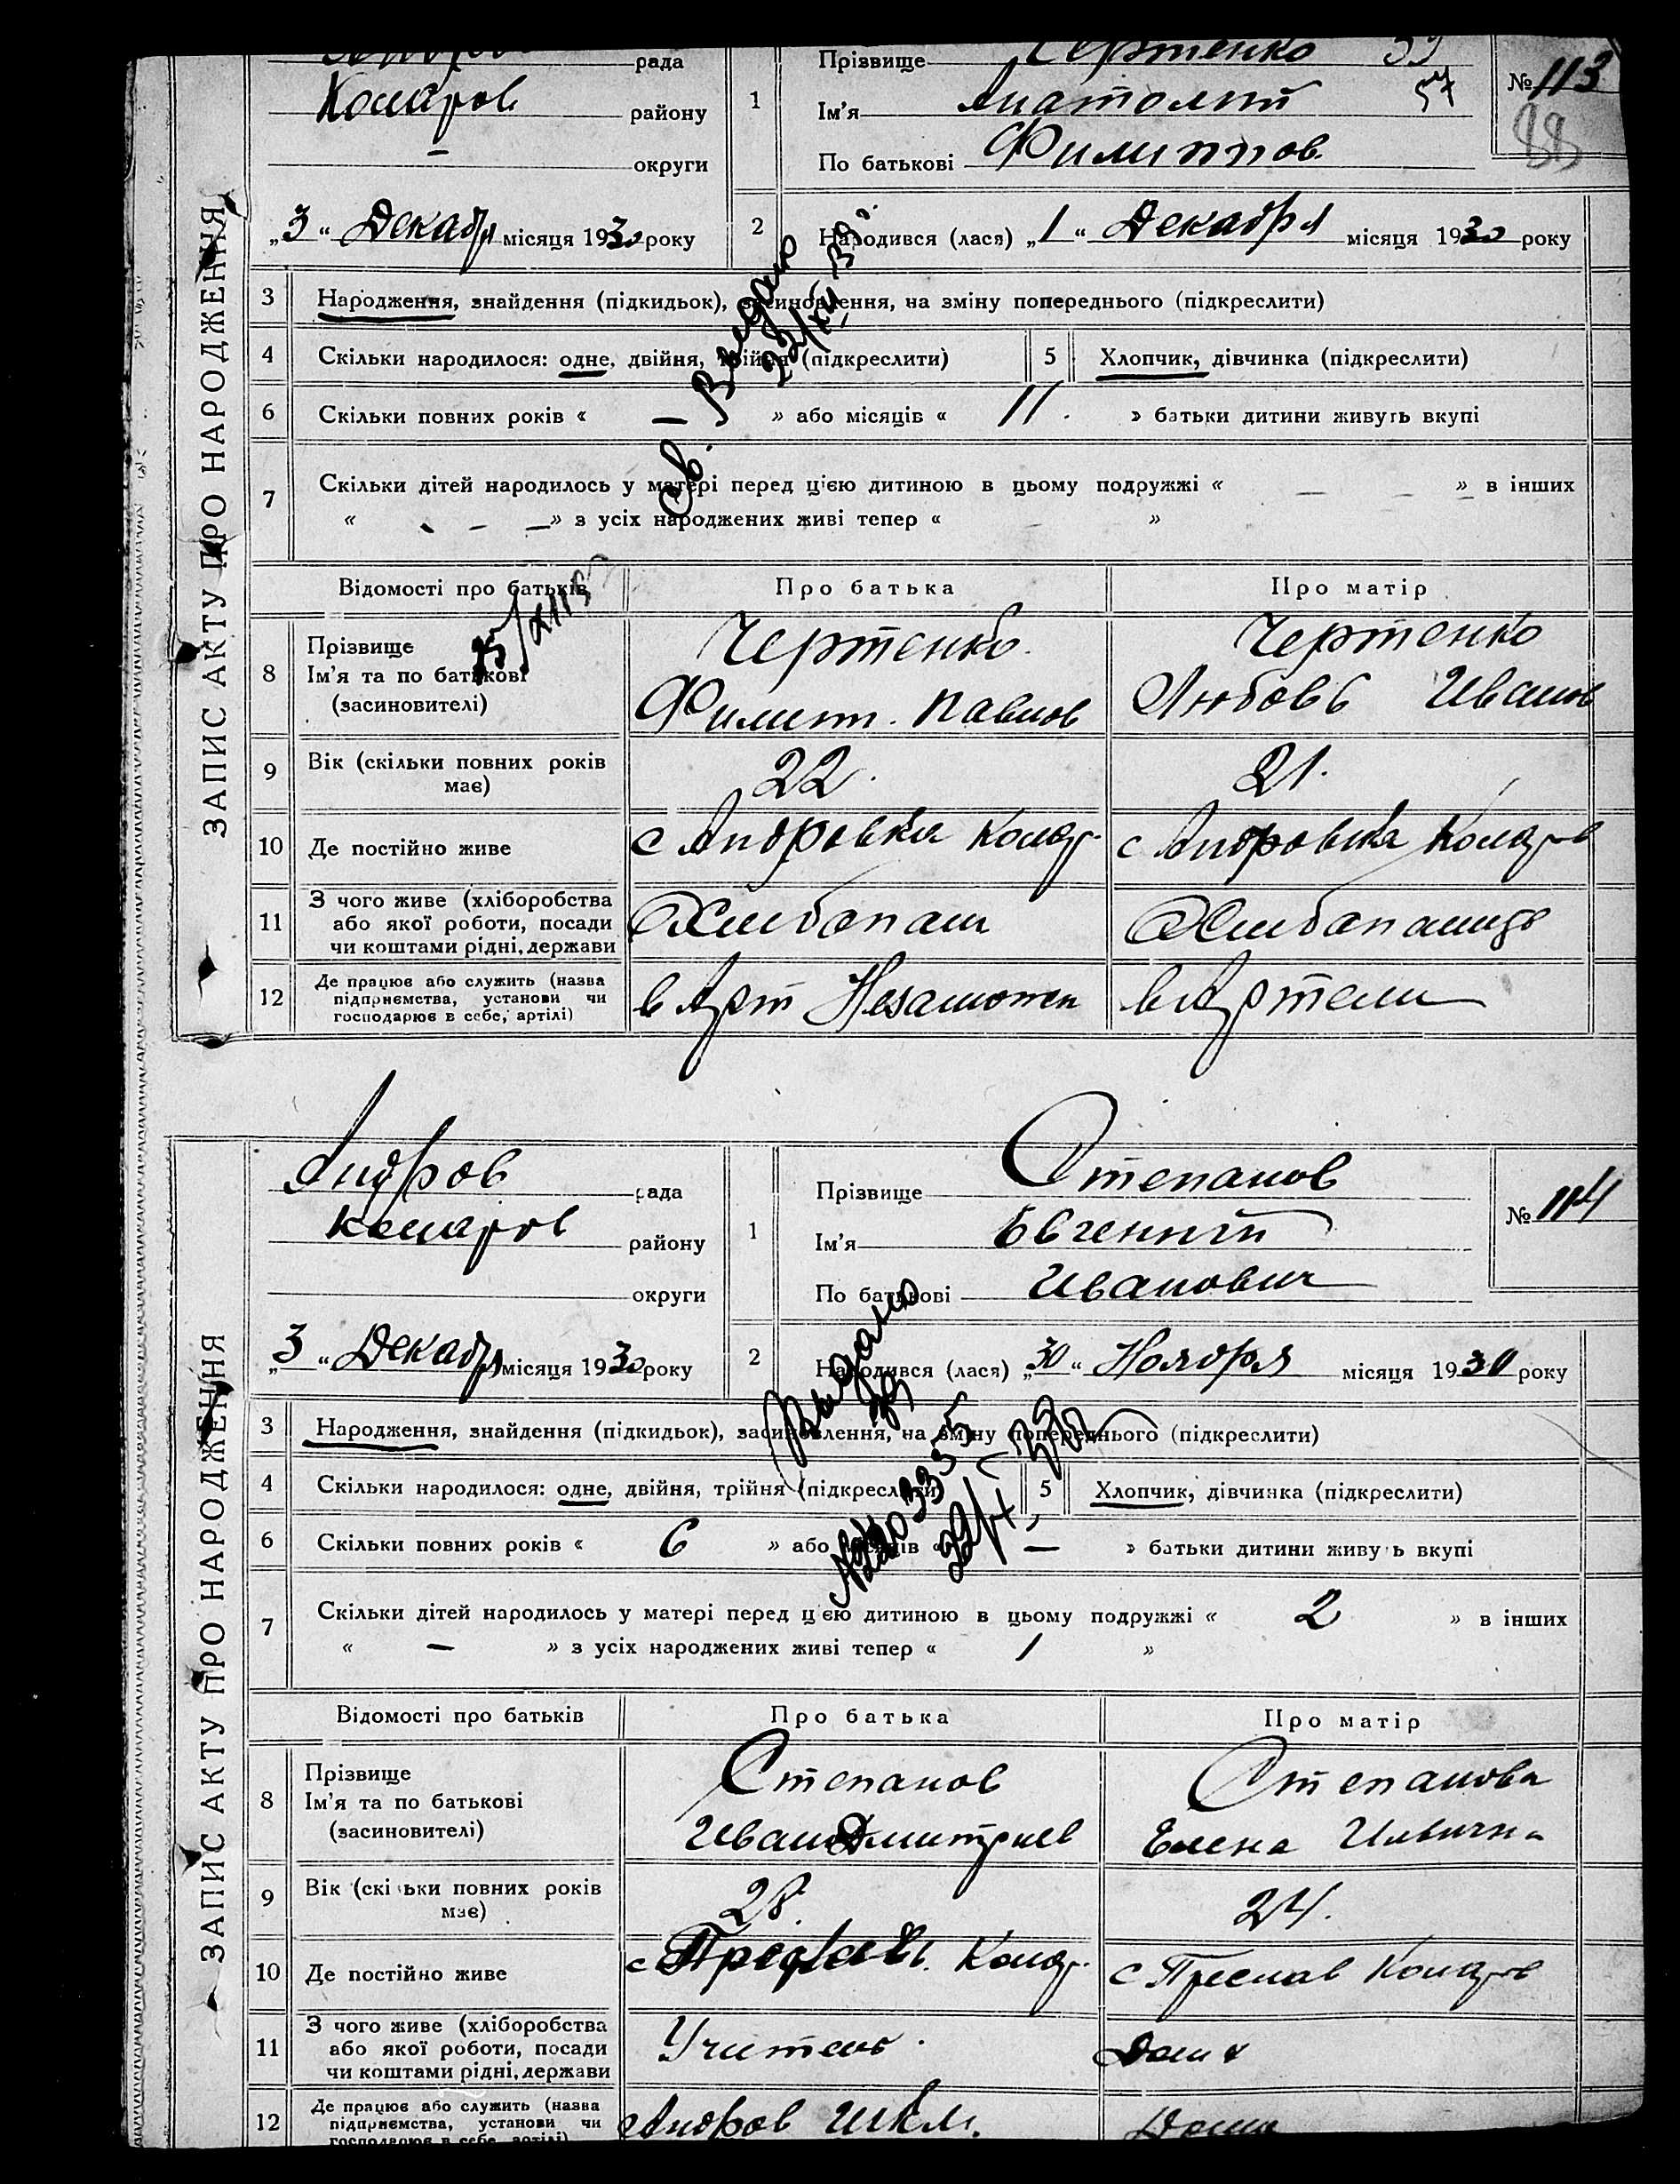 рада
Комаров району
— округи
„3“ Декабря місяця 1930 року
1
Прізвище Чертенко
Ім'я Анатолий 57
По батькові Филиппов.
№ 113
88
2 Народився (лася) „1“ Декабря місяця 1930 року
ЗАПИС АКТУ ПРО НАРОДЖЕННЯ
3 Народження, знайдення (підкидьок), засиновлення, на зміну попереднього (підкреслити)
4 Скільки народилося: одне, двійня, трійня (підкреслити)
5 Хлопчик, дівчинка (підкреслити)
6 Скільки повних років « — » або місяців « 11. » батьки дитини живуть вкупі
7 Скільки дітей народилось у матері перед цією дитиною в цьому подружжі « — — — » в інших
« - - — » з усіх народжених живі тепер « »
Св. Видано
Відомості про батьків Про батька Про матір
8 Прізвище
Ім'я та по батькові
(засиновителі)
Чертенко.
Филипп. Павлов
Чертенко
Любовь Иванов
9 Вік (скільки повних років
має)
22.
21.
10 Де постійно живе
с Андровка Комар.
с Андровка Комаров
11 З чого живе (хліборобства
або якої роботи, посади
чи коштами рідні, держави
Хлибопаш
12 Де працює або служить (назва
підприємства, установи чи
господарює в себе, артілі)
в Арт Незаможен
в Артели
Андров рада
Комаров району
округи
„3“ Декабря місяця 1930 року
1
Прізвище Степанов
Ім'я Евгений
По батькові Иванович
№ 114
2 Народився (лася) „30“ Ноября місяця 1930 року
ЗАПИС АКТУ ПРО НАРОДЖЕННЯ
3 Народження, знайдення (підкидьок), засиновлення, на зміну попереднього (підкреслити)
4 Скільки народилося: одне, двійня, трійня (підкреслити)
5 Хлопчик, дівчинка (підкреслити)
6 Скільки повних років « 6 » або місяців « — » батьки дитини живуть вкупі
7 Скільки дітей народилось у матері перед цією дитиною в цьому подружжі « 2 » в інших
« — » з усіх народжених живі тепер « 1 »
Выдано
Відомості про батьків Про батька Про матір
8 Прізвище
Ім'я та по батькові
(засиновителі)
Степанов
Иван Дмитриев
Степанова
Елена Ильична
9 Вік (скільки повних років
має)
28
24.
10 Де постійно живе
с Преслав. Комар.
с Преслав Комаров
11 З чого живе (хліборобства
або якої роботи, посади
чи коштами рідні, держави
Учитель.
12 Де працює або служить (назва
підприємства, установи чи
господарює в себе, артілі)
Андров Шкл.